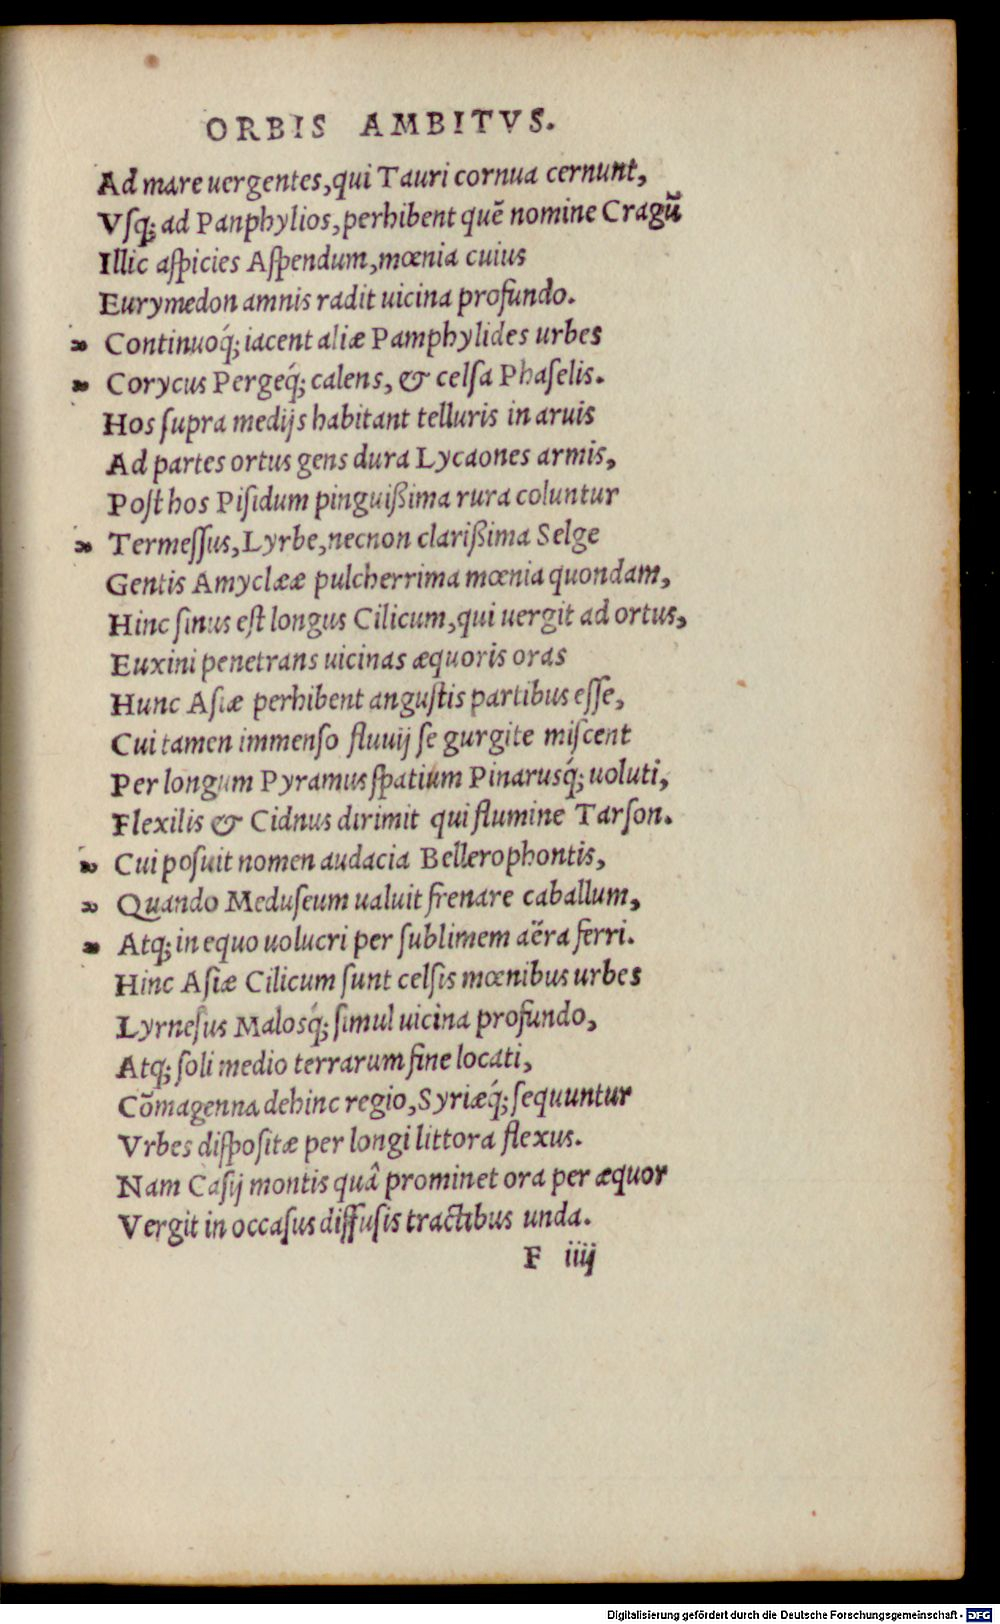 ORBIS AMBITVS.
Ad mare uergentes, qui Tauri cornua cernunt,
Vſq; ad Panphylios, perhibent quē nomine Cragū
Illic aſpicies Aſpendum, mœnia cuius
Eurymedon amnis radit uicina profundo.
Continuoq́; iacent aliæ Pamphylides urbes
Corycus Pergeq́; calens, & celſa Phaſelis.
Hos ſupra medijs habitant telluris in aruis
Ad partes ortus gens dura Lycaones armis,
Poſt hos Piſidum pinguißima rura coluntur
Termeſſus, Lyrbe, necnon clarißima Selge
Gentis Amyclææ pulcherrima mœnia quondam,
Hinc ſinus eſt longus Cilicum, qui uergit ad ortus,
Euxini penetrans uicinas æquoris oras
Hunc Aſiæ perhibent anguſtis partibus eſſe,
Cui tamen immenſo fluuij ſe gurgite miſcent
Per longum Pyramus ſpatium Pinarusq́; uoluti,
Flexilis & Cidnus dirimit qui flumine Tarſon.
Cui poſuit nomen audacia Bellerophontis,
Quando Meduſeum ualuit frenare caballum,
Atq; in equo uolucri per ſublimem aëra ferri.
Hinc Aſiæ Cilicum ſunt celſis mœnibus urbes
Lyrneſus Malosq́; ſimul uicina profundo,
Atq; ſoli medio terrarum fine locati,
Cōmagenna dehinc regio, Syriæq́; ſequuntur
Vrbes diſpoſitæ per longi littora flexus.
Nam Caſij montis quâ prominet ora per æquor
Vergit in occaſus diffuſis tractibus unda.
F iiij
Digitalisierung gefördert durch die Deutsche Forschungsgemeinschaft - DFG